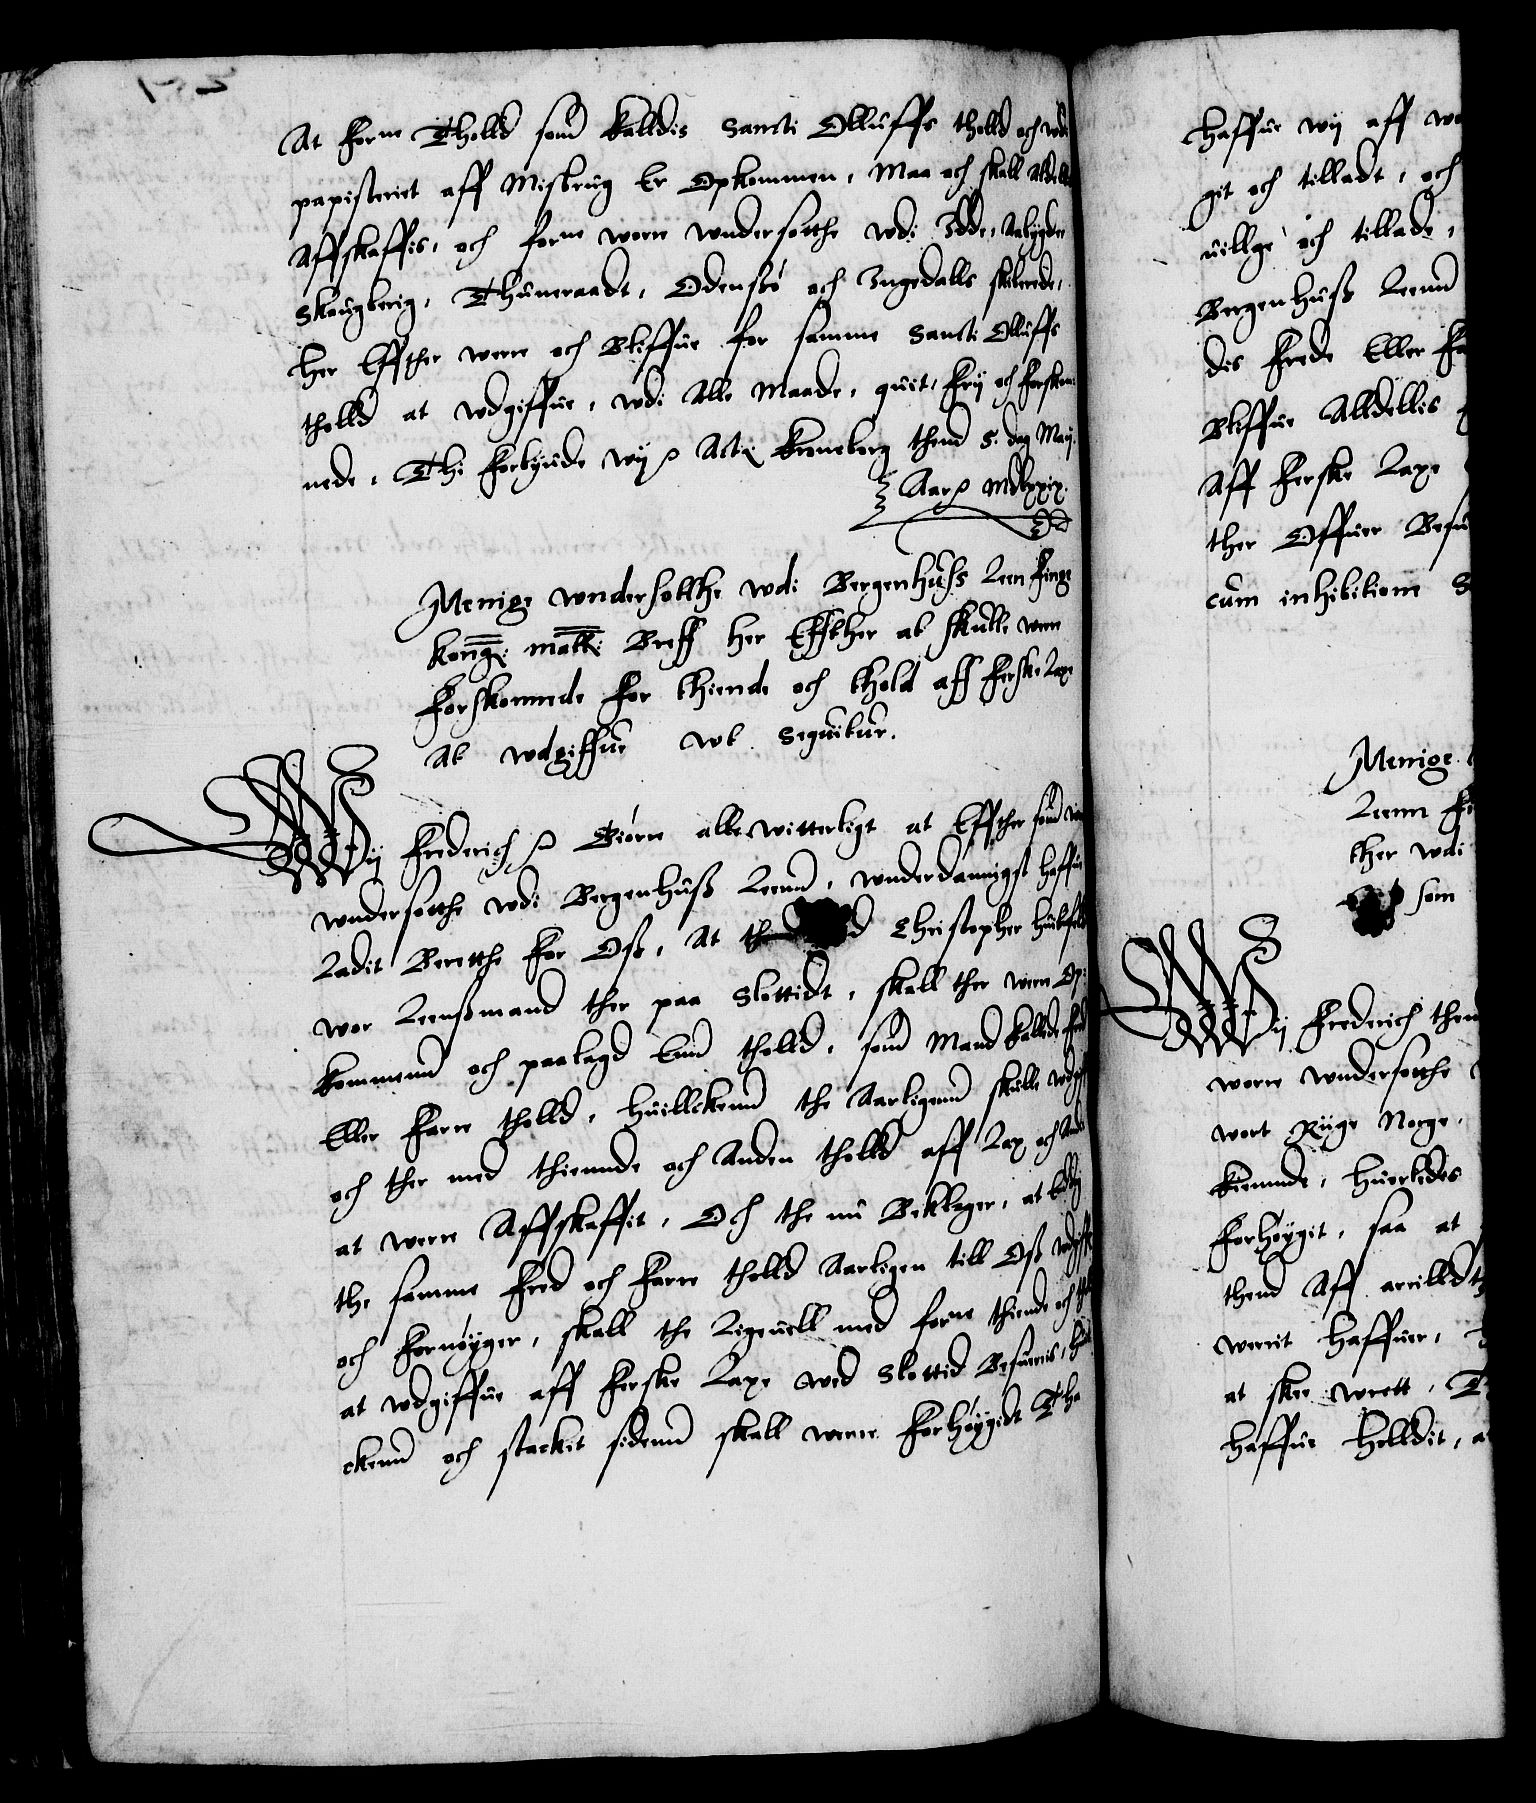 At forne Tholld som kalldis Sancti Olluffs tholld och wdi
papisteriet aff Misbrug Er Opkommen, Maa och skall Aldelles
Affskaffis, och forne wore wndersotthe wdi Idde, Aabygde
Skougberig, Thuneraadt, Odensøø och Ingedalls skibrede,
her Effther were och Bliffue for samme Sancti Olluffs
tholld at wdgiffue, wdi Alle Maade, quit, frij och forskon-
nede, Thi forbyude wij Act: Kroneborg thend 5. dag Maij
Aar MDLXXIX.
Menige wndersotthe wdi Bergenhuss Leen finge
kong: matt: Breff her Effther at skulle were
forskonnede for thiende och thold aff ferske Laxe
At wdgiffue wt sequitur.
Wij Frederich Giøre alle witterligt at Effther som wore
wndersotthe wdi Bergenhuss Leenn, wnderdannigst haffue
Ladit Berette for Oss, At Christopher Huitfeld
wor Leenssmand ther paa Slottidt, skall ther were Op-
kommenn och paalagd Enn tholld, som Mand kallde fred
Eller farre tholld, huilckenn the Aarligenn skulle wdgiffue
och ther med thiennde och Anden tholld aff Lax och Andit
at were Affskaffit, Och the nu Beklager, at Endog
the samme fred och farre tholld Aarligen till Oss wdgiffuer
och fornøyger, skall the Ligeuell med forne thiende och thold
at wdgiffue aff ferske Laxe wed Slottid Besueris, huil-
ckenn och stackit sidenn skall were forhøygidt Tha
haffue wij aff wor
git och tilladt, och
uillge och tillade,
Bergenhuss Leenn
dis frede Eller fa
Bliffue Alldellis
Aff ferske Laxe
ther Offuer Besu
cum inhibitione S
Menige
Leenn fi
ther wdi
som
Wij Frederich thend
wore wndersotthe
wort Rige Norge,
kiennde, huorledes
forhøygit, saa at
thend Aff arilld t
werit haffuer,
at skee wrett, T
haffue helldit, at